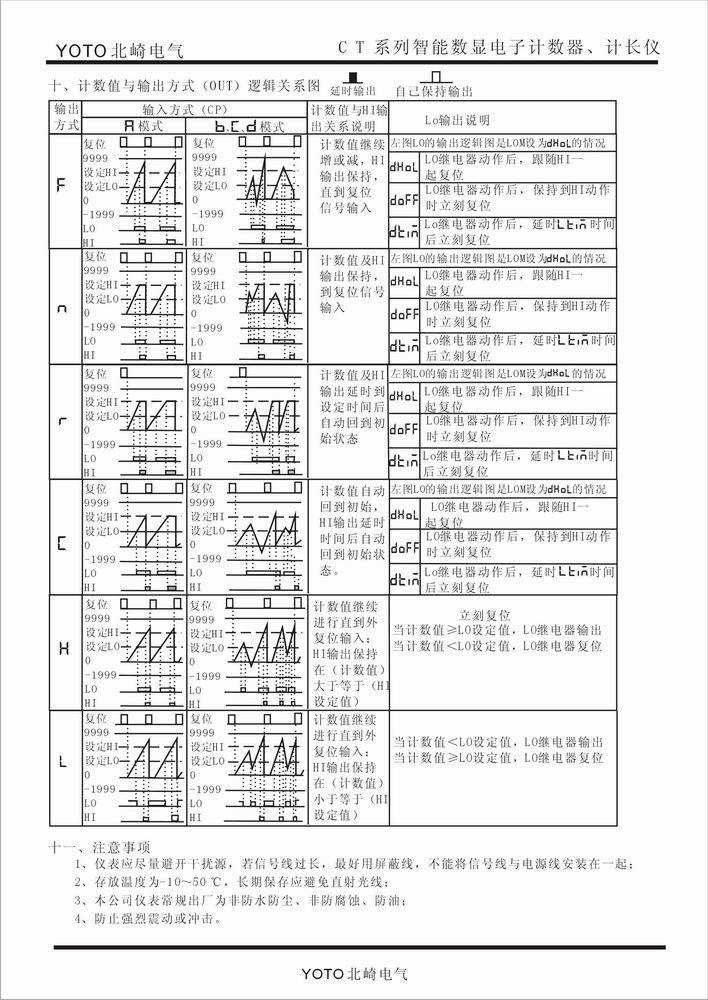 YOTO 北崎电气
CT系列智能数显电子计数器、计长仪
十、计数值与输出方式（OUT）逻辑关系图 延时输出 自己保持输出
输出方式
输入方式（CP）
A 模式
b.C.d 模式
计数值与HI输出关系说明
Lo输出说明
F
复位
9999
设定HI
设定LO
0
-1999
LO
HI
复位
9999
设定HI
设定LO
0
-1999
LO
HI
计数值继续
增或减，HI
输出保持，
直到复位
信号输入
左图LO的输出逻辑图是LOM设为dHoL的情况
dHoL LO继电器动作后，跟随HI一
起复位
doFF LO继电器动作后，保持到HI动作
时立刻复位
dtim Lo继电器动作后，延时Ltim时间
后立刻复位
n
复位
9999
设定HI
设定LO
0
-1999
LO
HI
复位
9999
设定HI
设定LO
0
-1999
LO
HI
计数值及HI
输出保持，
到复位信号
输入
左图LO的输出逻辑图是LOM设为dHoL的情况
dHoL LO继电器动作后，跟随HI一
起复位
doFF LO继电器动作后，保持到HI动作
时立刻复位
dtim Lo继电器动作后，延时Ltim时间
后立刻复位
r
复位
9999
设定HI
设定LO
0
-1999
LO
HI
复位
9999
设定HI
设定LO
0
-1999
LO
HI
计数值及HI
输出延时到
设定时间后
自动回到初
始状态
左图LO的输出逻辑图是LOM设为dHoL的情况
dHoL LO继电器动作后，跟随HI一
起复位
doFF LO继电器动作后，保持到HI动作
时立刻复位
dtim Lo继电器动作后，延时Ltim时间
后立刻复位
C
复位
9999
设定HI
设定LO
0
-1999
LO
HI
复位
9999
设定HI
设定LO
0
-1999
LO
HI
计数值自动
回到初始，
HI输出延时
时间后自动
回到初始状
态。
左图LO的输出逻辑图是LOM设为dHoL的情况
dHoL LO继电器动作后，跟随HI一
起复位
doFF LO继电器动作后，保持到HI动作
时立刻复位
dtim Lo继电器动作后，延时Ltim时间
后立刻复位
H
复位
9999
设定HI
设定LO
0
-1999
LO
HI
复位
9999
设定HI
设定LO
0
-1999
LO
HI
计数值继续
进行直到外
复位输入；
HI输出保持
在（计数值）
大于等于（HI
设定值）
立刻复位
当计数值≥LO设定值，LO继电器输出
当计数值<LO设定值，LO继电器复位
L
复位
9999
设定HI
设定LO
0
-1999
LO
HI
复位
9999
设定HI
设定LO
0
-1999
LO
HI
计数值继续
进行直到外
复位输入；
HI输出保持
在（计数值）
小于等于（HI
设定值）
当计数值<LO设定值，LO继电器输出
当计数值≥LO设定值，LO继电器复位
十一、注意事项
1、仪表应尽量避开干扰源，若信号线过长，最好用屏蔽线，不能将信号线与电源线安装在一起；
2、存放温度为-10～50℃，长期保存应避免直射光线；
3、本公司仪表常规出厂为非防水防尘、非防腐蚀、防油；
4、防止强烈震动或冲击。
YOTO 北崎电气